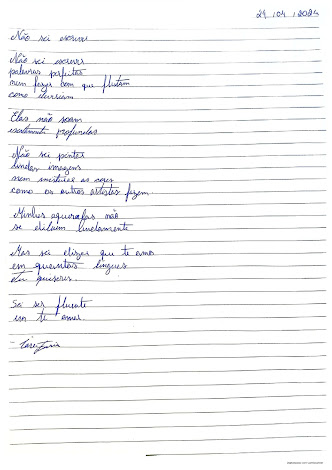 24/04/2024
Não sei escrever
Não sei escrever
palavras perfeitas
nem fazer com que flutuem
como deveriam
Elas não soam
exatamente profundas
Não sei pintar
lindas imagens
nem misturar as cores
como os outros artistas fazem
Minhas aquarelas não
se diluem lindamente
Mas sei dizer que te amo
em quantas línguas
tu quiseres.
Sei ser fluente
em te amar.